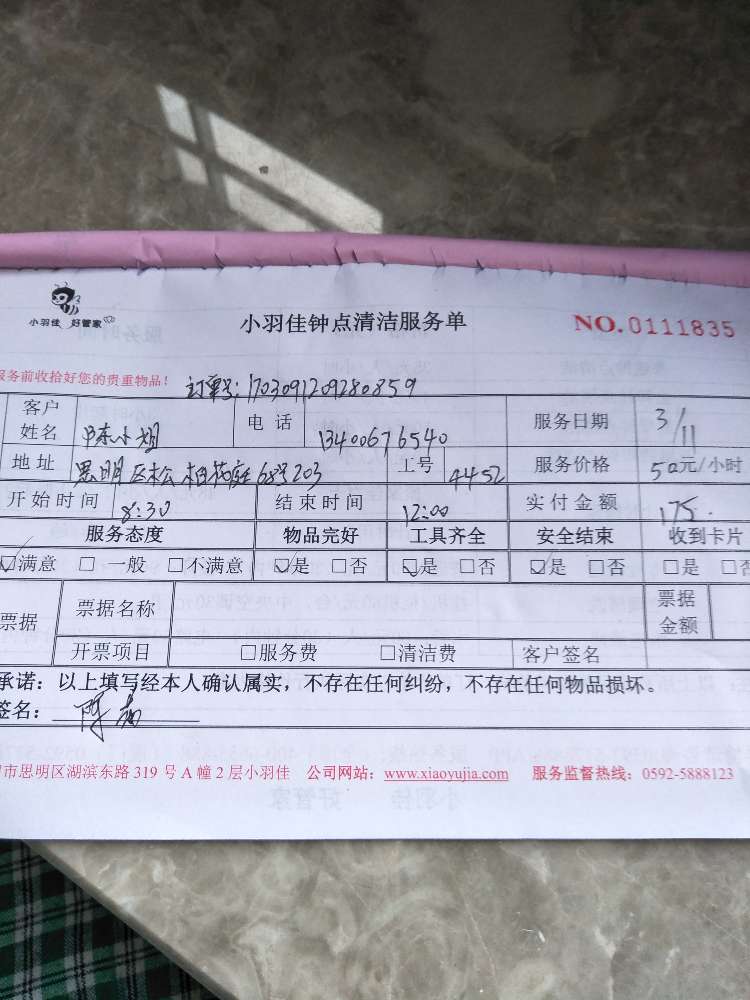 小羽佳 好管家
小羽佳钟点清洁服务单
NO.0111835
服务前收拾好您的贵重物品！
订单号:1703091209280859
客户姓名 陈小姐 电话 13400676540 服务日期 3/11
地址 思明区松柏花庭68号203 工号 4452 服务价格 50元/小时
开始时间 8:30 结束时间 12:00 实付金额 175.
服务态度 物品完好 工具齐全 安全结束 收到卡片
☑满意 □一般 □不满意 ☑是 □否 ☑是 □否 ☑是 □否 □是 □否
票据 票据名称 票据金额
开票项目 □服务费 □清洁费 客户签名
承诺：以上填写经本人确认属实，不存在任何纠纷，不存在任何物品损坏。
签名：陈
市思明区湖滨东路 319 号 A 幢 2 层小羽佳 公司网站：www.xiaoyujia.com 服务监督热线：0592-5888123